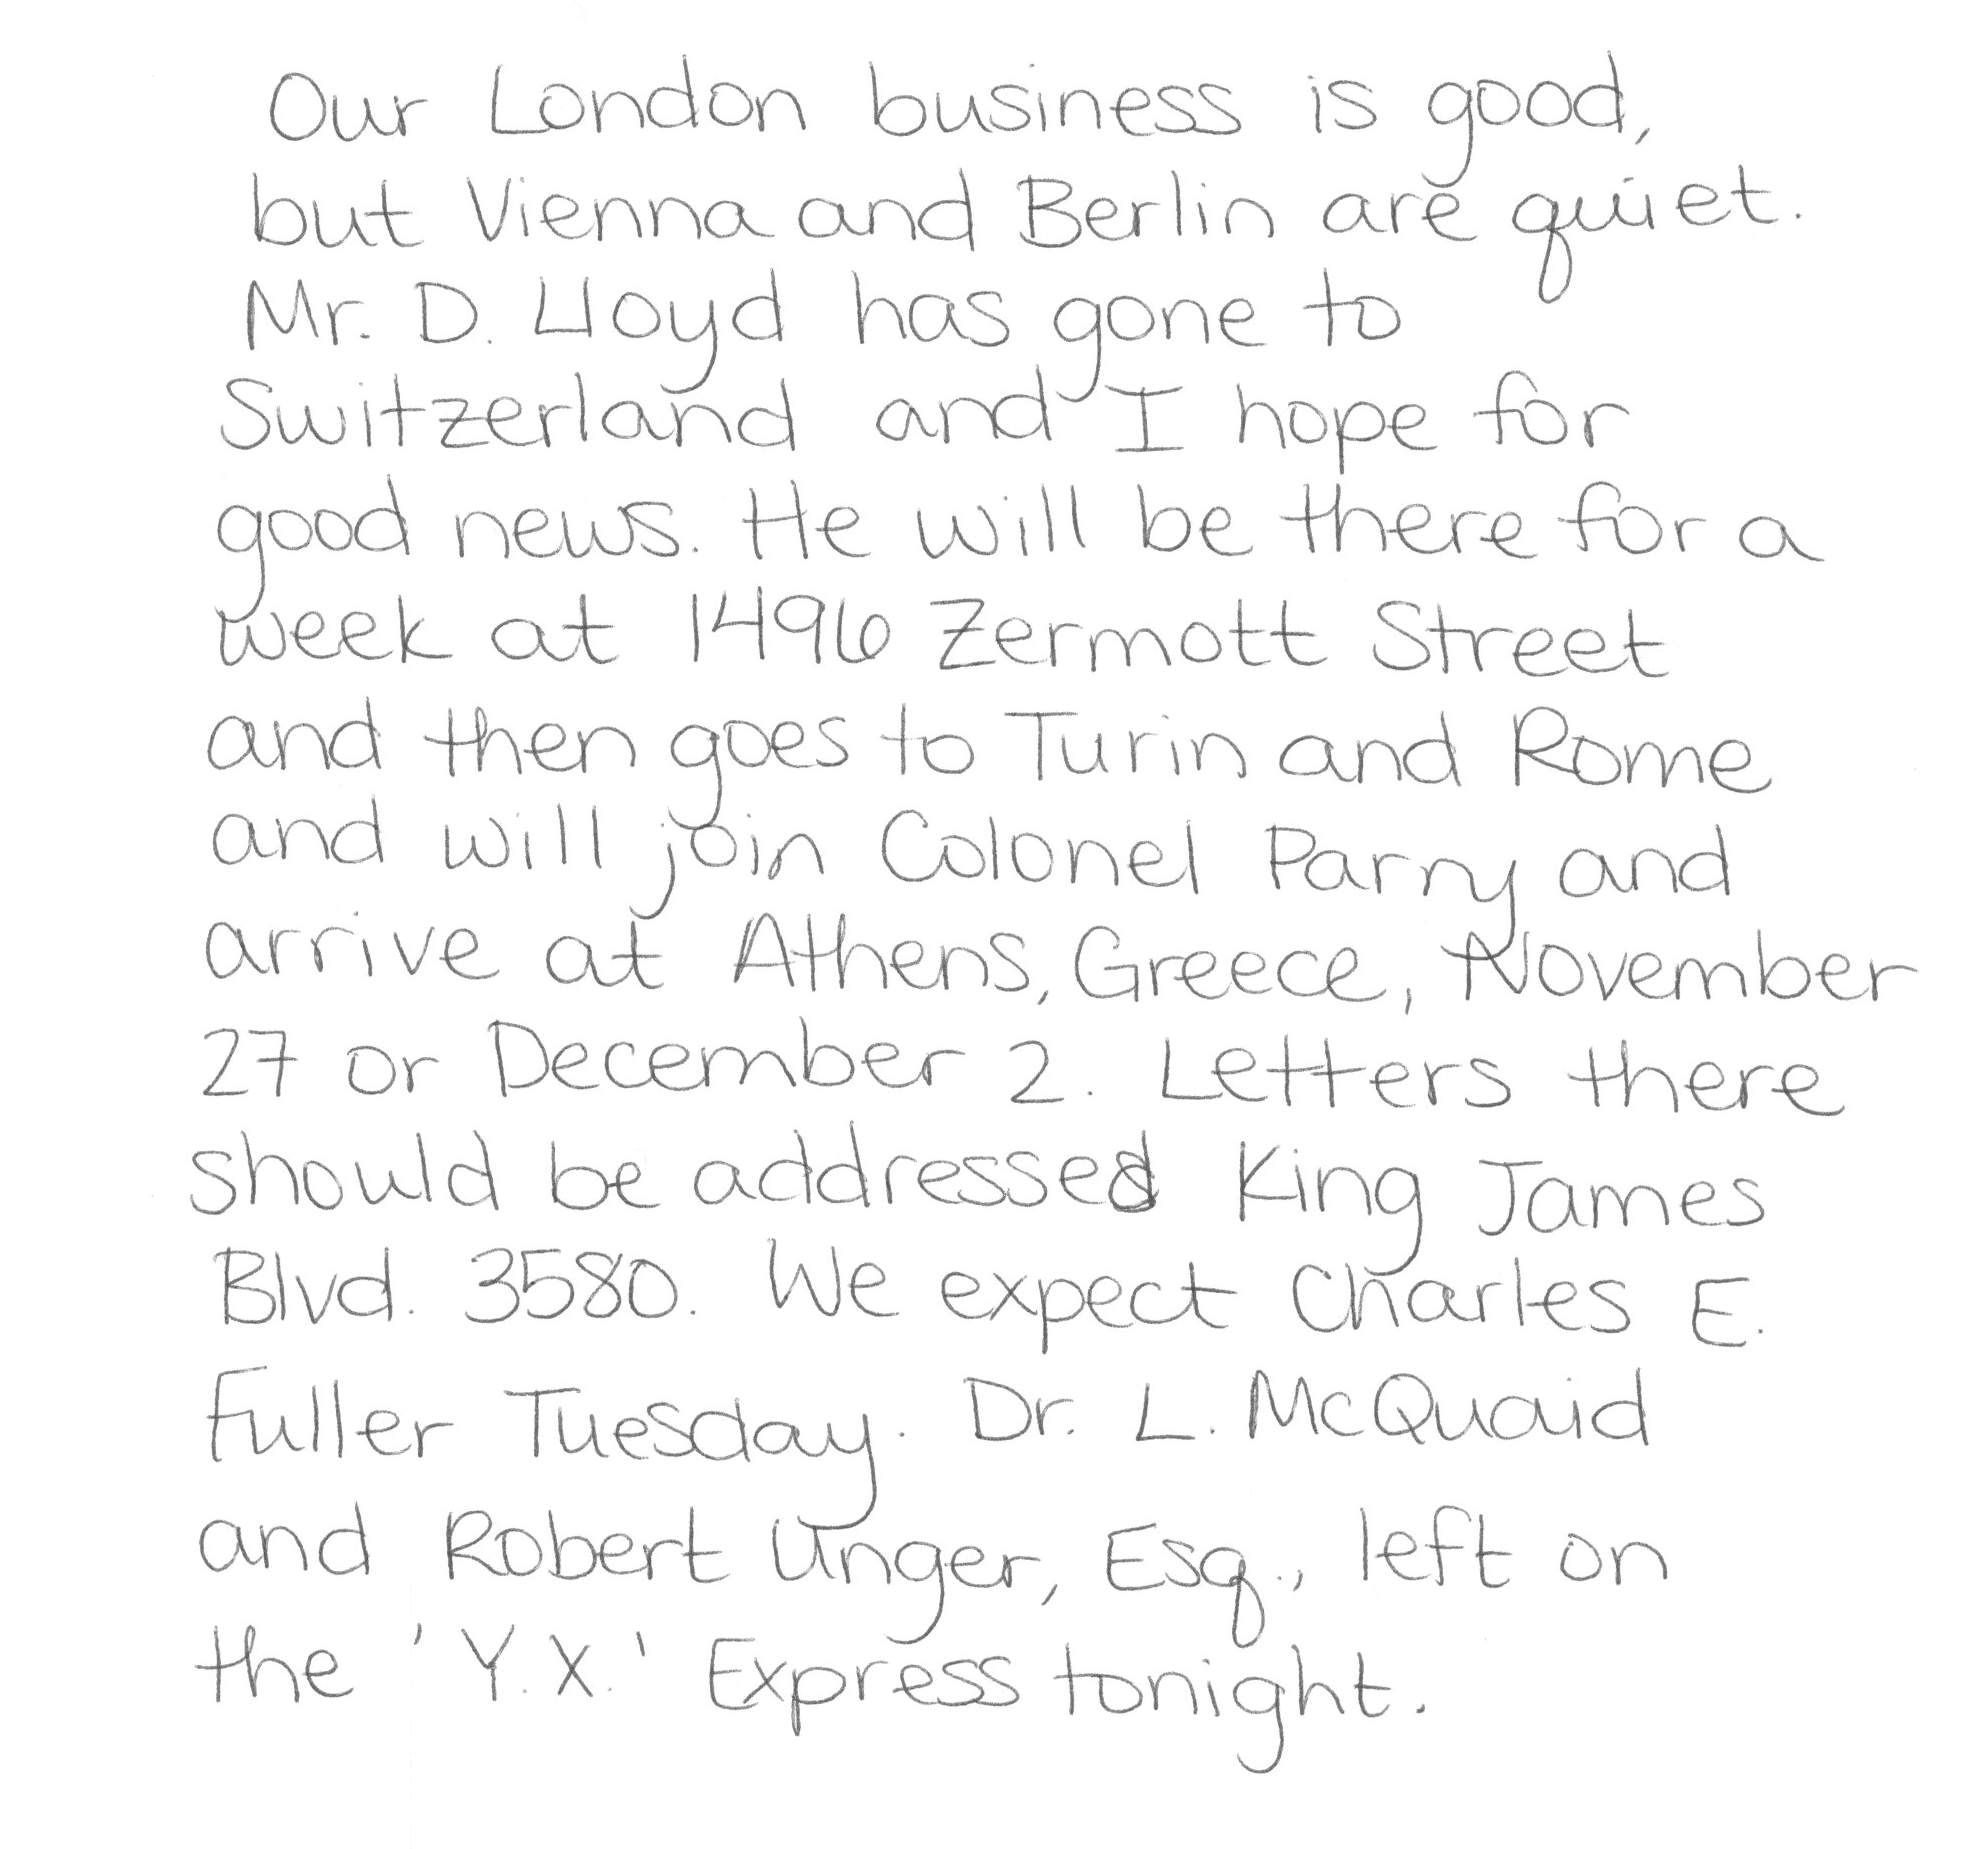 Our London business is good,
but Vienna and Berlin are quiet.
Mr. D. Lloyd has gone to
Switzerland and I hope for
good news. He will be there for a
week at 1496 Zermott Street
and then goes to Turin and Rome
and will join Colonel Parry and
arrive at Athens, Greece, November
27 or December 2. Letters there
should be addressed King James
Blvd. 3580. We expect Charles E.
Fuller Tuesday. Dr. L. McQuaid
and Robert Unger, Esq., left on
the 'Y.X.' Express tonight.